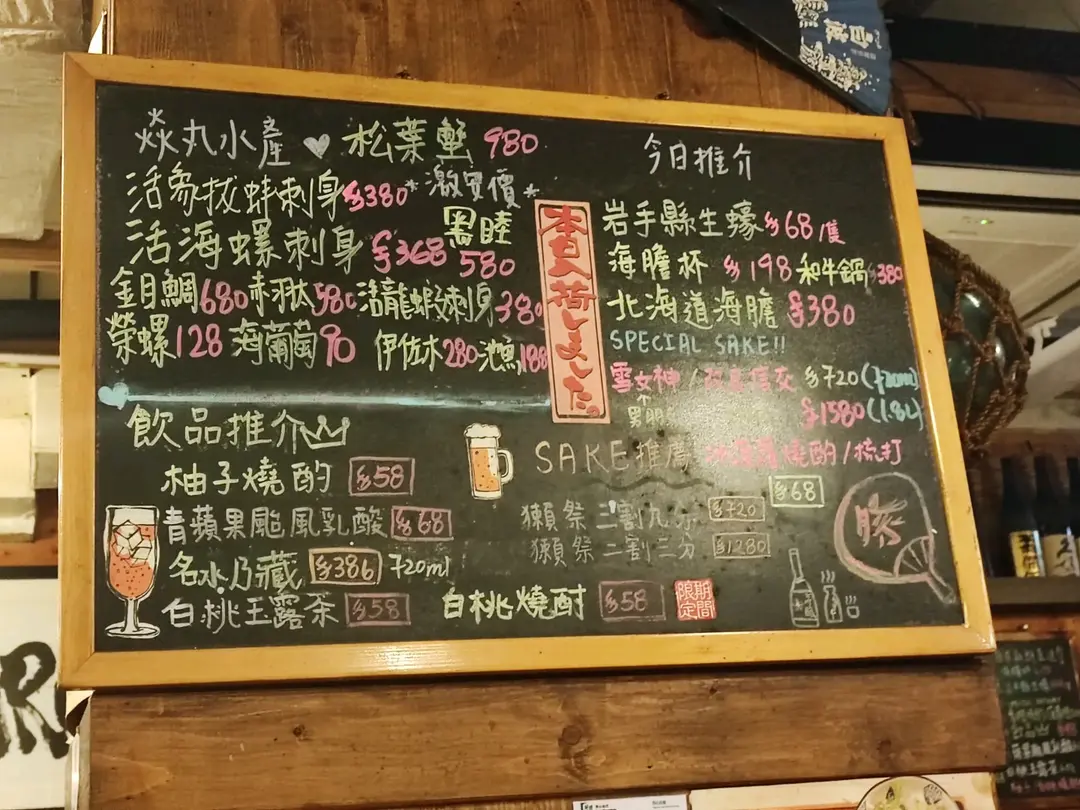 焱丸水產♡松葉蟹 980
*激安價*
活象拔蚌刺身$380
活海螺刺身$368
黑睦
580
金目鯛680赤羽太580活龍蝦刺身380
榮螺128 海葡萄90 伊佐木280池魚188
本日入荷しました。
今日推介
岩手縣生蠔$68/隻
海膽杯 $198 和牛鍋$380
北海道海膽$380
SPECIAL SAKE!!
雪女神/ $720(720ml)
$1580(1.8L)
飲品推介
柚子燒酌 $58
青蘋果颱風乳酸 $68
名水乃藏 $386 720ml
白桃玉露茶 $58
SAKE推廌
燒酌/梳打
$68
獺祭 三割九分 $720
獺祭 二割三分 $1280
白桃燒酎 $58
期間限定
勝